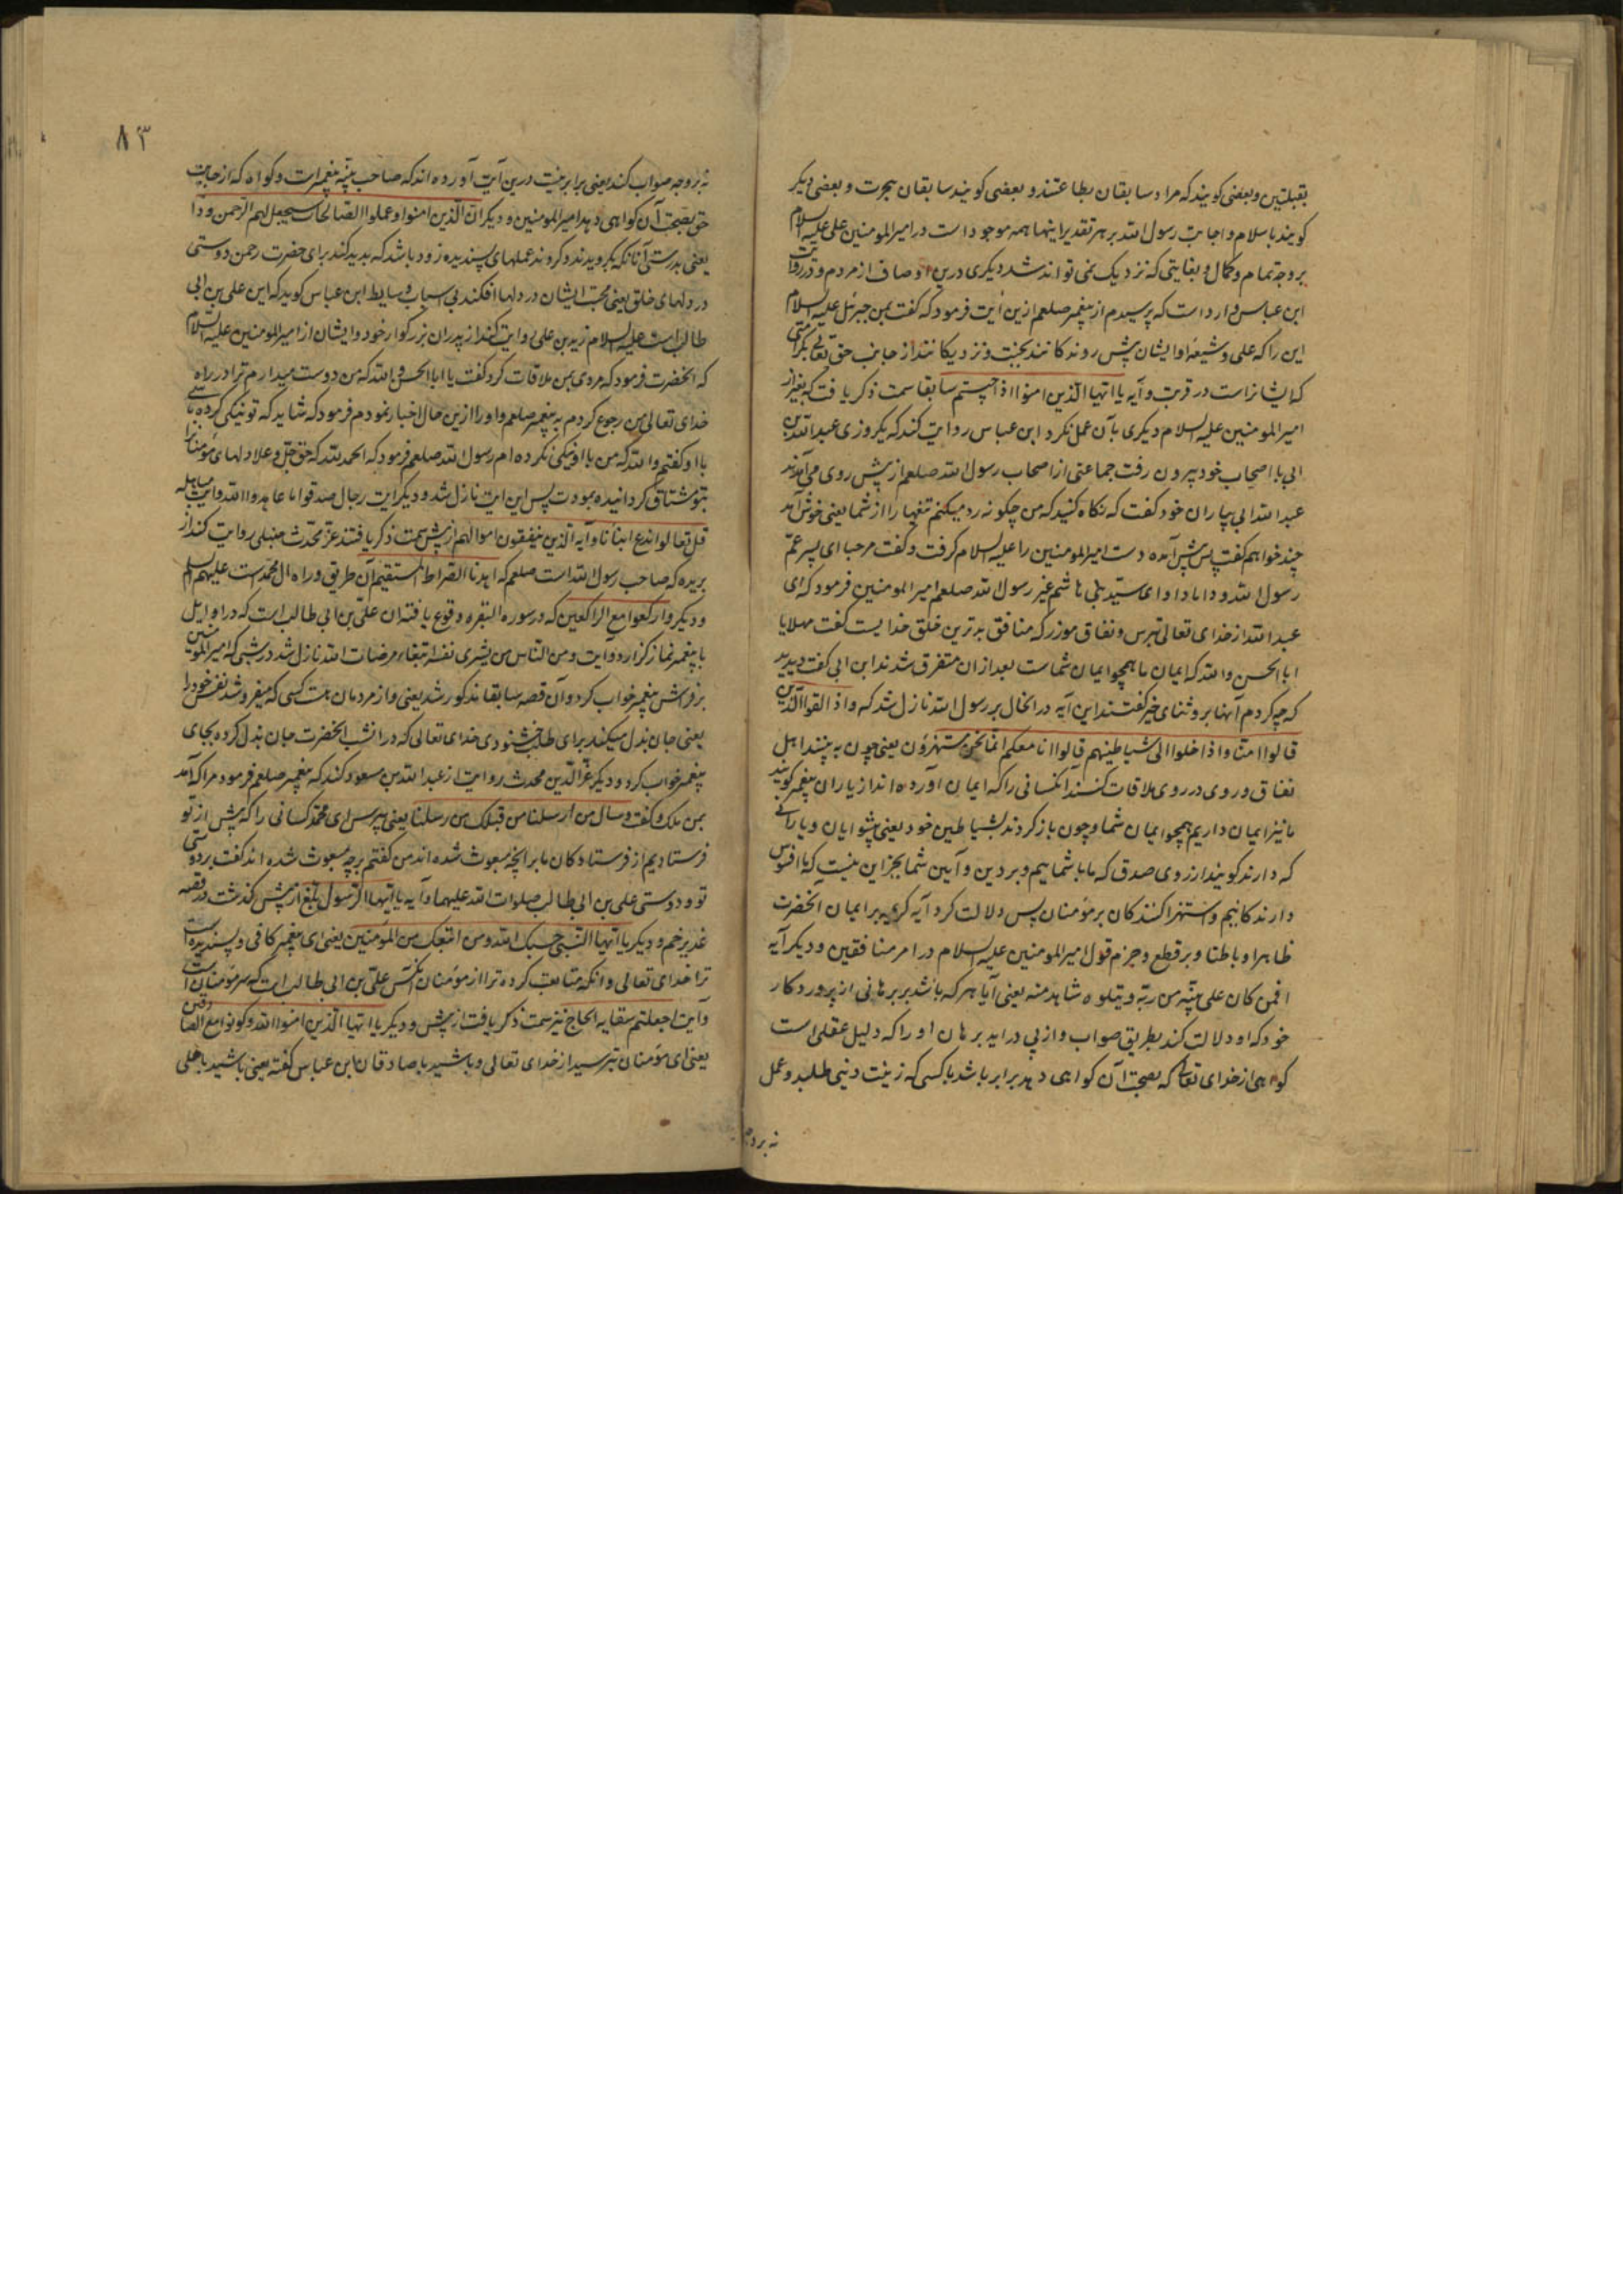 بقبلتین و بعضی کویند که مراد سابقان بطاعتند و بعضی کویند سابقان بهجرت و بعضی دیکر
کویند باسلام و اجابت رسول الله بر هر تقدیر اینها همه موجود است در امیرالمومنین علی علیه السلام
بر وجه تمام و کمال و بغایتی که نزدیک نمی تواند شد دیکری درین اوصاف از مردم و در روایت
ابن عباس وارد است که پرسیدم از پیغمبر صلعم ازین آیت فرمود که گفت بمن جبرئیل علیه السلام
این را که علی و شیعه او ایشان پیش روندکانند بجنت و نزدیکانند از جانب حق تعالی بکرامتی
که ایشانراست در قربت و آیه یا ایها الذین امنوا اذا جیتم سابقا سمت ذکر یافت که بغیر از
امیرالمومنین علیه السلام دیکری بآن عمل نکرد ابن عباس روایت کند که یکروزی عبدالله بن
ابی با اصحاب خود بیرون رفت جماعتی از اصحاب رسول الله صلعم از پیش روی می آمدند
عبدالله ابی بیاران خود کفت که نکاه کنید که من چکونه رد میکنم را از شما یعنی خوش آمد
چند خواهم کفت پس پیش آمده دست امیرالمومنین را علیه السلام کرفت و کفت مرحبا ای پسر عم
رسول الله و داماد او ای سید بنی هاشم غیر رسول الله صلعم امیرالمومنین فرمود که ای
عبدالله از خدای تعالی بترس و نفاق موزر که منافق بدترین خلق خدایست کفت مهلا یا
ابا الحسن والله که ایمان ما همچو ایمان شماست بعد ازان متفرق شدند ابن ابی کفت دیدید
که چه کردم آنها برو ثنای خیر کفتند این آیه در الحال بر رسول الله نازل شد که و اذا لقوا الذین
قالوا امنا و اذا خلوا الی شیاطینهم قالوا انا معکم انما نحن مستهزؤن یعنی چون به بینند اهل
نفاق و روی در روی ملاقات کنند آنکسانی را که ایمان آورده اند از یاران پیغمبر کویند
ما نیز ایمان داریم همچو ایمان شما و چون باز کردند بشیاطین خود یعنی پیشوایان و یارانی
که دارند کویند از روی صدق که ما با شماییم و بر دین و آیین شما بجز این نیست که ما افسوس
دارندکانیم و استهزا کنندکان بر مؤمنان پس دلالت کرد آیه کریمه بر ایمان آنحضرت
ظاهرا و باطنا و بر قطع و جزم قول امیرالمومنین علیه السلام در امر منافقین و دیکر آیه
افمن کان علی بینه من ربه و یتلوه شاهد منه یعنی آیا هر که باشد بر برهانی از پروردکار
خود که او دلالت کند بطریق صواب و از پی در اید برهان او را که دلیل عقلی است
کواهی از خدای تعالی که بصحت آن کواهی دهد برابر باشد با کسی که زینت دنیی طلبد و عمل
نه بر وجه
۸۳
نه بر وجه صواب کند یعنی برابر نیست درین آیت آورده اند که صاحب بینه پیغمبر است و کواه که از جانب
حق بصحت آن کواهی دهد امیرالمومنین و دیکر ان الذین امنوا و عملوا الصالحات سیجعل لهم الرحمن ودا
یعنی بدرستی آنانکه بکرویدند و کردند عملهای پسندیده زود باشد که پدید کند برای حضرت رحمن دوستی
در دلهای خلق یعنی محبت ایشان در دلها افکند بی اسباب و سایط ابن عباس کوید که این علی بن ابی
طالب است علیه السلام زید بن علی روایت کند از پدران بزرکوار خود و ایشان از امیرالمومنین علیه السلام
که آنحضرت فرمود که مردی بمن ملاقات کرد کفت یا ابا الحسن والله که من دوست میدارم ترا در راه
خدای تعالی من رجوع کردم به پیغمبر صلعم و او را ازین حال اخبار نمودم فرمود که شاید که تو نیکی کرده
با او کفتم والله که من با او نیکی نکرده ام رسول الله صلعم فرمود که الحمد لله که حق جل و علا دلهای مؤمنان را
بتو مشتاق کردانیده بمودت پس این آیت نازل شد و دیکر آیت رجال صدقوا ما عاهدوا الله و آیت مباهله
قل تعالوا ندع ابنائنا و آیه الذین ینفقون اموالهم از پیش سمت ذکر یافتند عز محدث حنبلی روایت کند از
بریده که صاحب رسول الله است صلعم که اهدنا الصراط المستقیم آن طریق و راه ال محمد است علیهم السلم
و دیکر وارکعوا مع الراکعین که در سوره البقره وقوع یافته ان علی بن ابی طالب است که در اوایل
با پیغمبر نماز کزارد و آیت و من الناس من یشری نفسه ابتغاء مرضات الله نازل شد در شبی که امیرالمومنین
بر فراش پیغمبر خواب کرد و آن قصه سابقا مذکور شد یعنی و از مردمان هست کسی که میفروشد نفس خود را
یعنی جان بذل میکند برای طلب خشنودی خدای تعالی که در انشب آنحضرت جان بذل کرده بجای
پیغمبر خواب کرد و دیکر عز الدین محدث روایت از عبدالله بن مسعود کند که پیغمبر صلعم فرمود مرا که آمد
بمن ملک و کفت وسال من ارسلنا من قبلک من رسلنا یعنی بپرس ای محمد کسانی را که پیش از تو
فرستادیم از فرستادکان ما بر آنچه مبعوث شده اند من کفتم بر چه مبعوث شده اند کفت بر دوستی
تو و دوستی علی بن ابی طالب صلوات الله علیهما و آیه یا ایها الرسول بلغ از پیش کذشت در قصه
غدیر خم و دیکر یا ایها النبی حسبک الله و من اتبعک من المومنین یعنی ای پیغمبر کافی و پسندیده است
ترا خدای تعالی و انکه متابعت کرده ترا از مؤمنان انکس علی بن ابی طالب است که سر مؤمنان است
و آیت اجعلتم سقایه الحاج نیز سمت ذکر یافت از پیش و دیکر یا ایها الذین امنوا اتقوا الله و کونوا مع الصادقین
یعنی ای مؤمنان بترسید از خدای تعالی و باشید با صادقان ابن عباس کفته یعنی باشید با علی